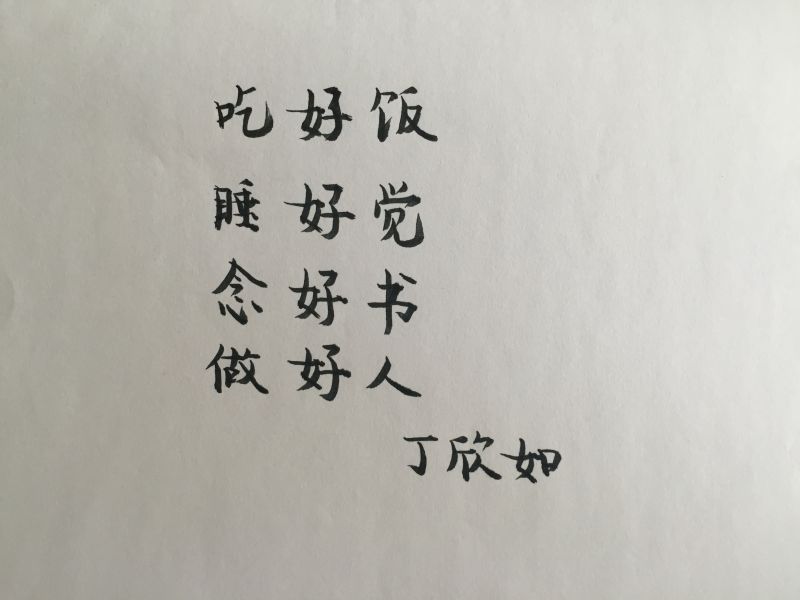 吃好饭
睡好觉
念好书
做好人
丁欣如